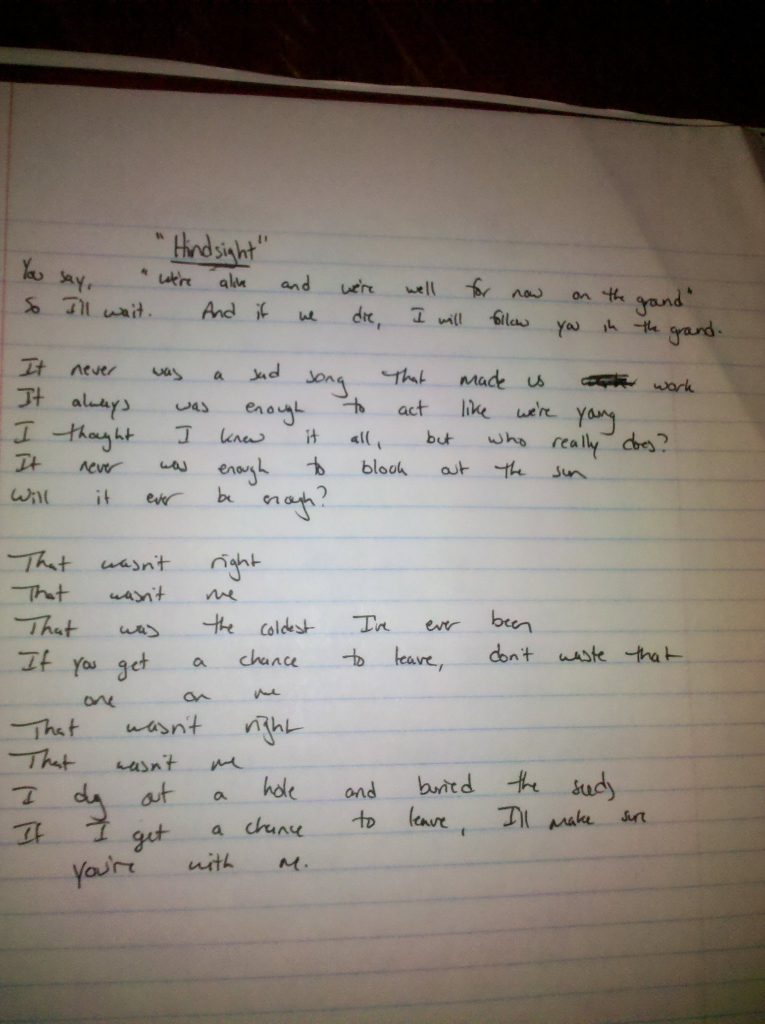 "Hindsight"
You say, "We're alive and we're well for now on the grand"
So I'll wait. And if we die, I will follow you in the grand.
It never was a sad song that made us work
It always was enough to act like we're young
I thought I knew it all, but who really does?
It never was enough to block out the sun
Will it ever be enough?
That wasn't right
That wasn't me
That was the coldest I've ever been
If you get a chance to leave, don't waste that
one on me
That wasn't right
That wasn't me
I dug out a hole and buried the seeds
If I get a chance to leave, I'll make sure
you're with me.